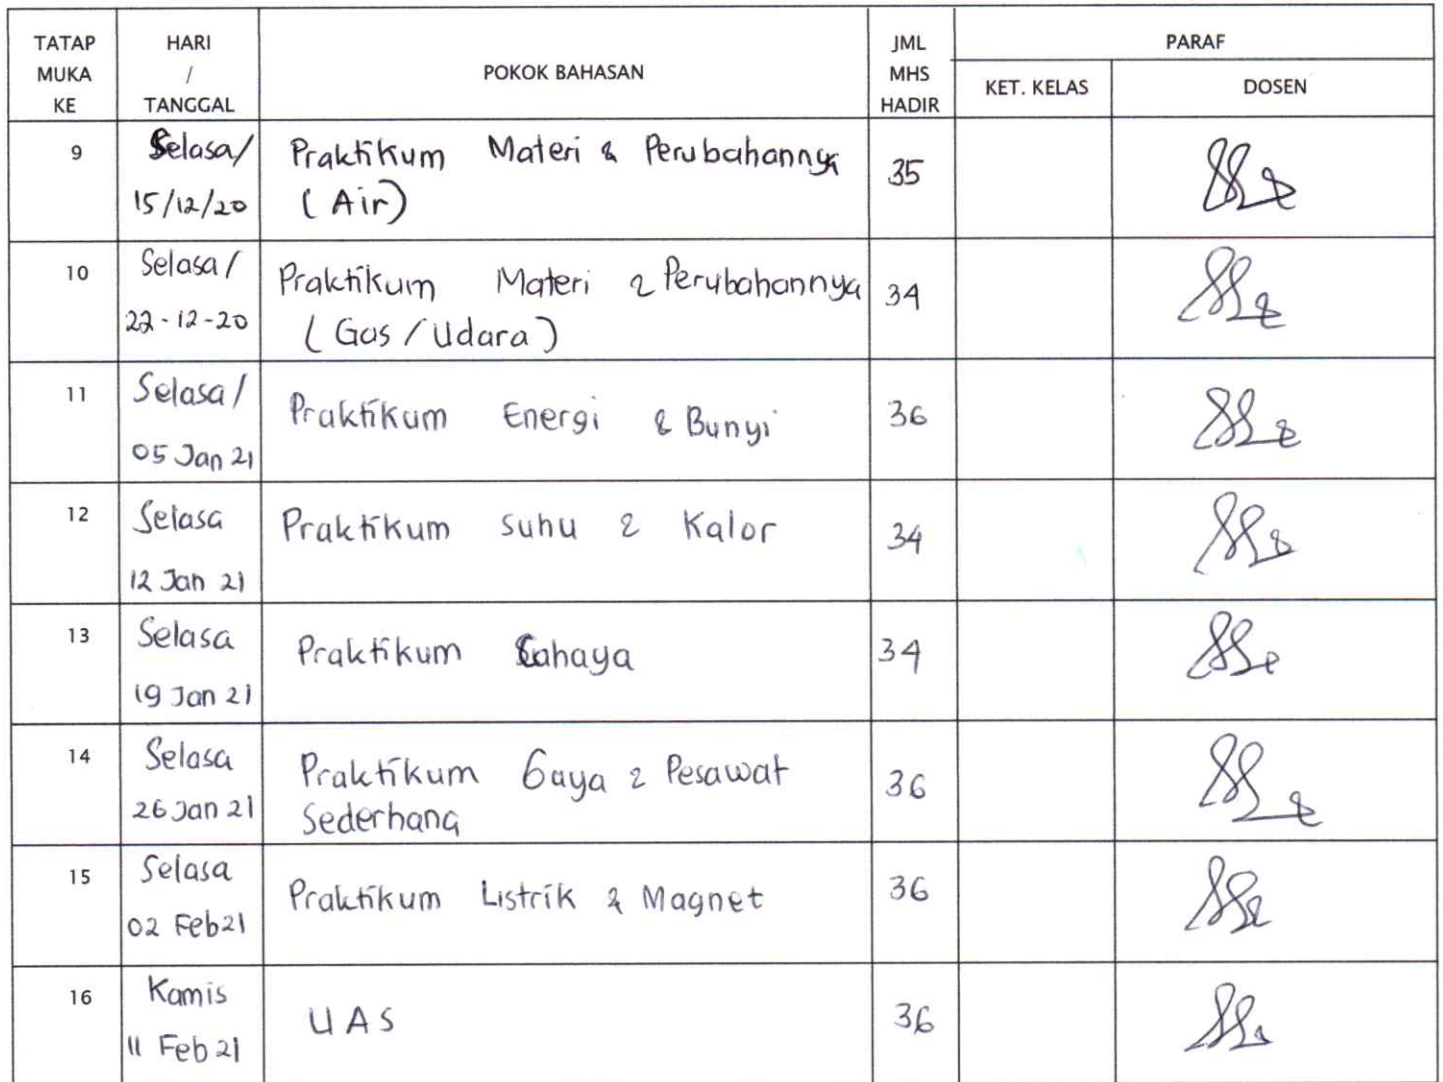 TATAP MUKA KE HARI / TANGGAL POKOK BAHASAN JML MHS HADIR PARAF
KET. KELAS DOSEN
9 Selasa/ 15/12/20 Praktikum Materi & Perubahannya 35
(Air)
10 Selasa/ 22-12-20 Praktikum Materi & Perubahannya 34
(Gas/Udara)
11 Selasa/ 05 Jan 21 Praktikum Energi & Bunyi 36
12 Selasa 12 Jan 21 Praktikum suhu & Kalor 34
13 Selasa 19 Jan 21 Praktikum Cahaya 34
14 Selasa 26 Jan 21 Praktikum Gaya & Pesawat 36
Sederhana
15 Selasa 02 Feb 21 Praktikum Listrik & Magnet 36
16 Kamis 11 Feb 21 UAS 36